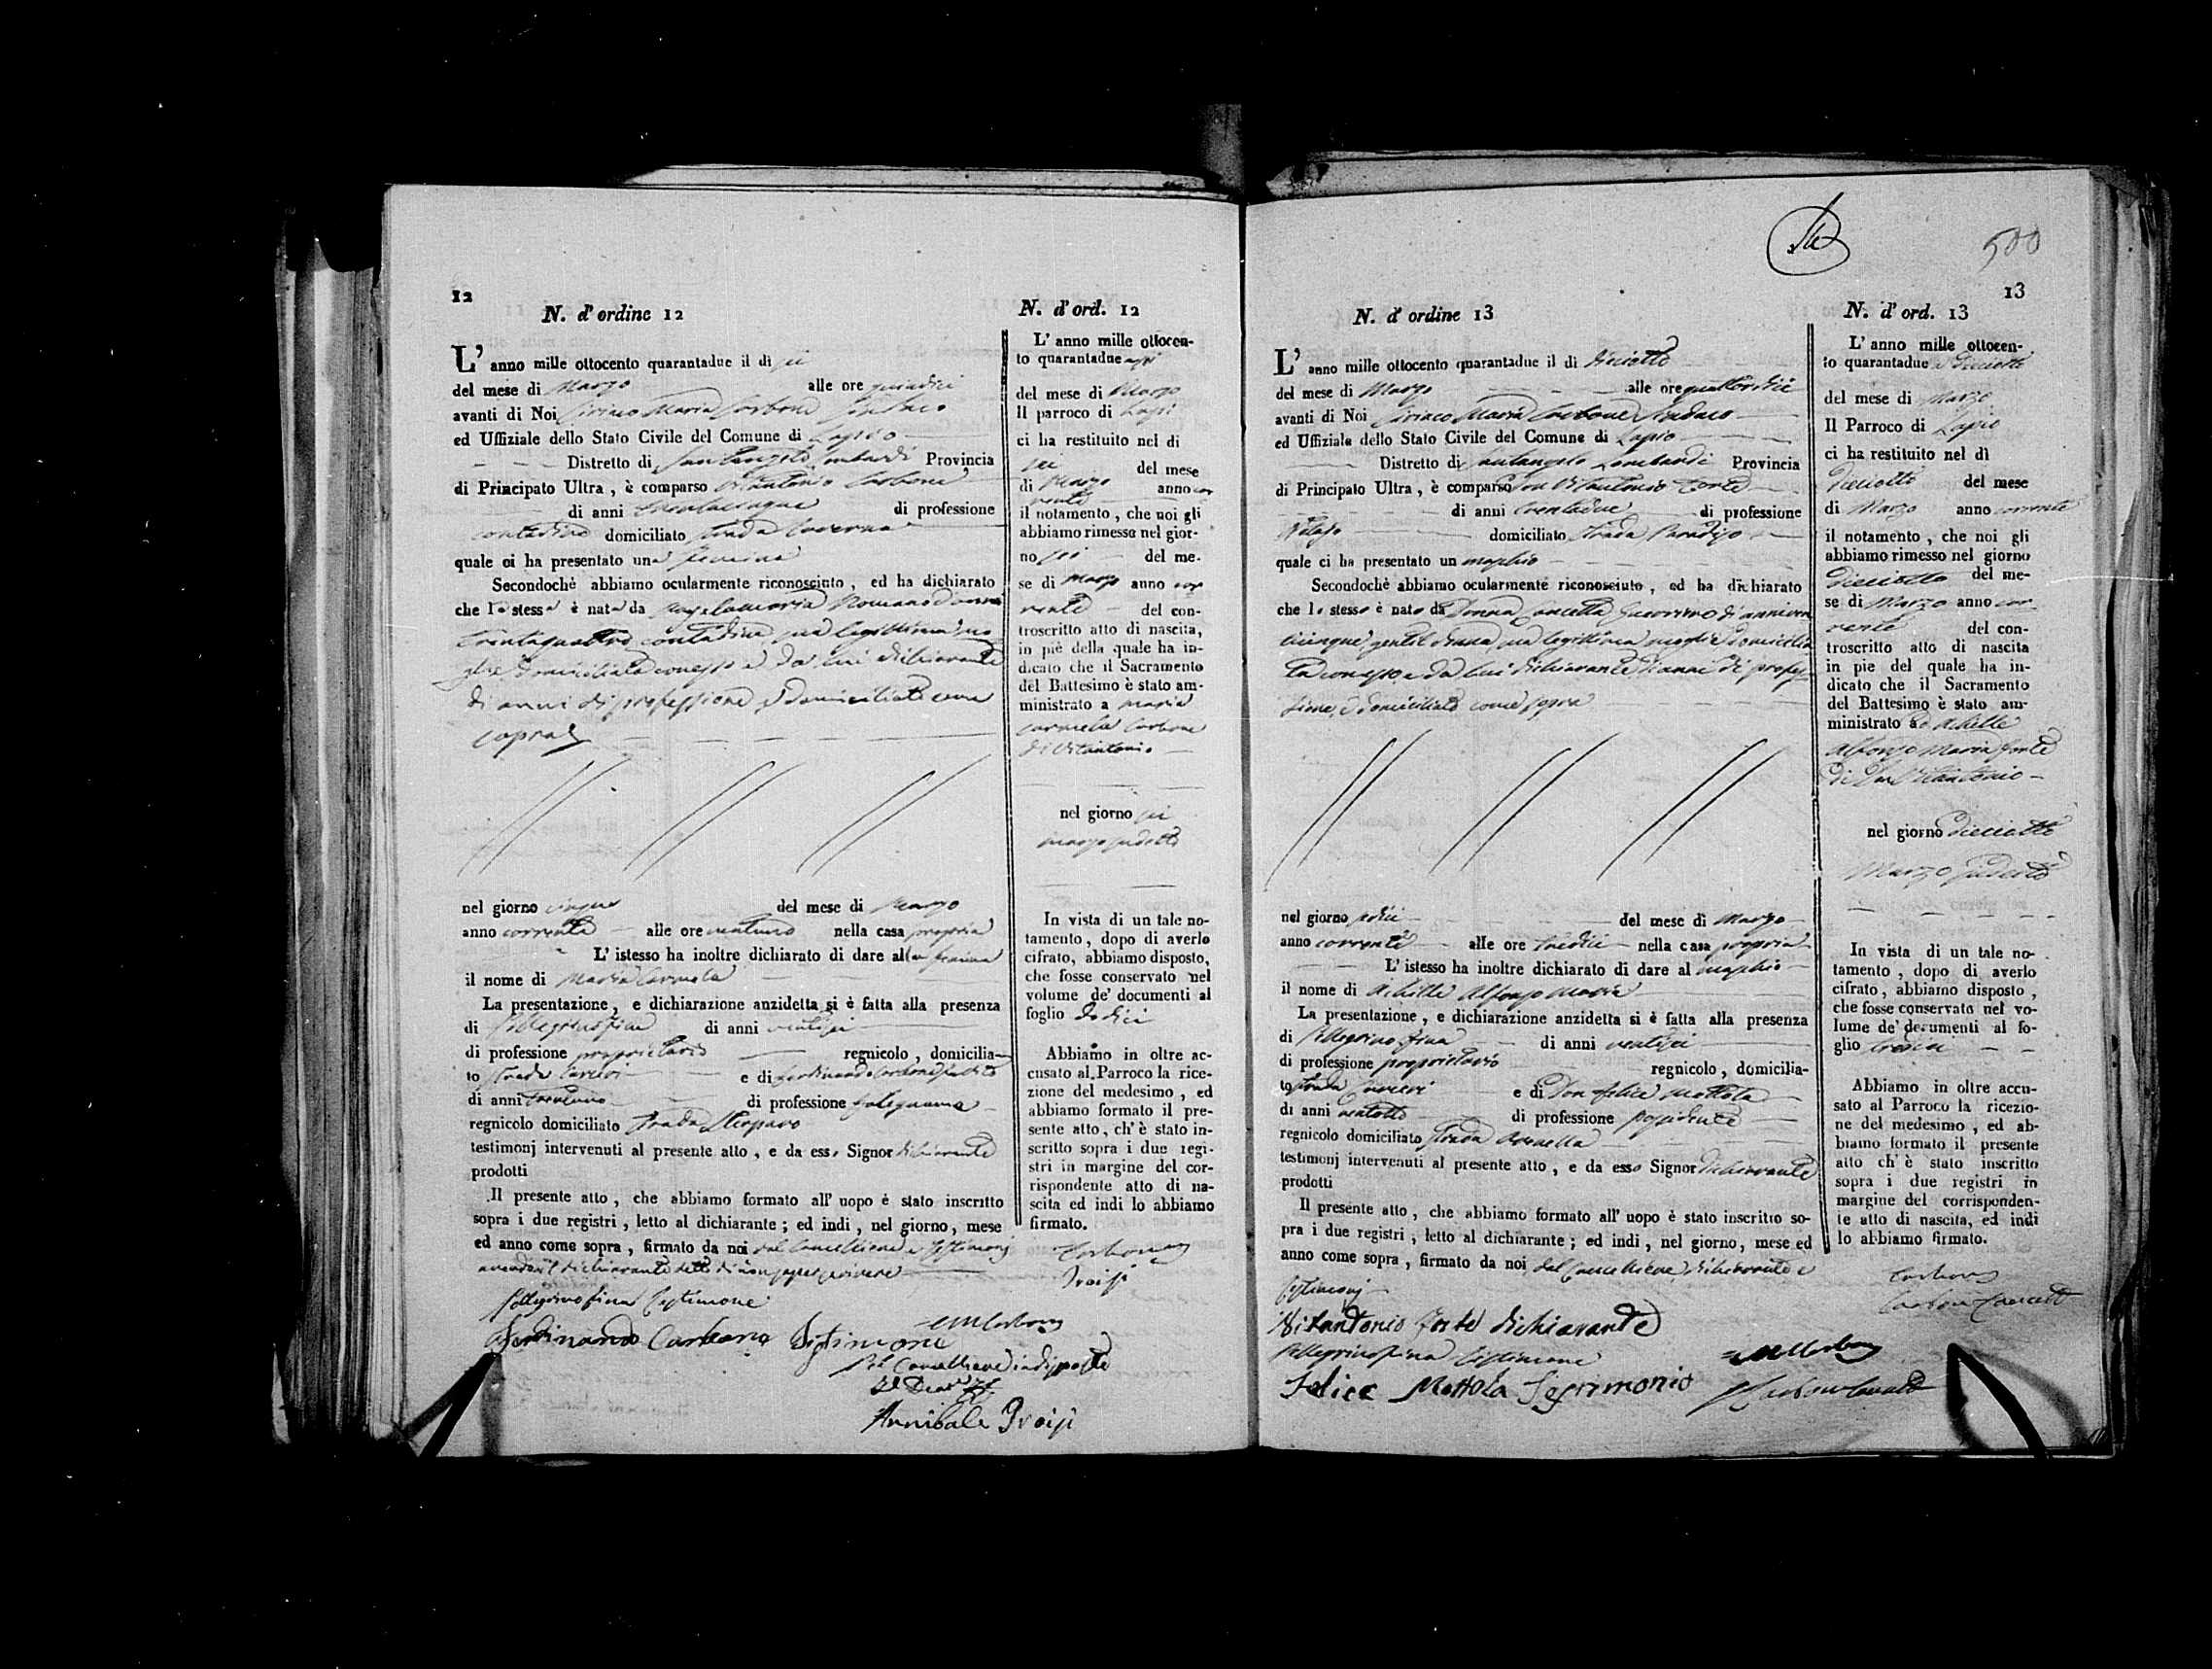 12
N. d'ordine 12
L' anno mille ottocento quarantadue il di sei
del mese di Marzo alle ore quindici
avanti di Noi Ciriaco Maria Carbone Sindaco
ed Uffiziale dello Stato Civile del Comune di Lapio
Distretto di Santangelo Lombardi Provincia
di Principato Ultra , è comparso Vitantonio Carbone
di anni di professione
contadino domiciliato strada
quale ci ha presentato una femina
Secondochè abbiamo ocularmente riconosciuto , ed ha dichiarato
che la stessa è nata da Angelamaria Romano d'anni
trentaquattro contadina sua legittima mo
glie domiciliata conesso e da lui dichiarante
di anni di professione, e domiciliato come
sopra
nel giorno cinque del mese di Marzo
anno corrente alle ore ventuno nella casa propria
L' istesso ha inoltre dichiarato di dare alla femina
il nome di Maria Carmela
La presentazione , e dichiarazione anzidetta si è fatta alla presenza
di Pellegrino Fina di anni ventisei
di professione proprietario regnicolo , domicilia-
to strada Carceri e di Ferdinando Carbone
di anni trentuno di professione falegname
regnicolo domiciliato strada
testimonj intervenuti al presente atto , e da esso Signor dichiarante
prodotti
Il presente atto , che abbiamo formato all' uopo è stato inscritto
sopra i due registri , letto al dichiarante ; ed indi , nel giorno , mese
ed anno come sopra , firmato da noi dal Cancelliere e testimonj
avendo il dichiarante detto di non saper scrivere
Pellegrino Fina testimone
Ferdinando Carbone Testimone
CM Carbone
Pel Cancelliere indisposto
Annibale Troisi
N. d' ord. 12
L' anno mille ottocen-
to quarantadue a sei
del mese di Marzo
Il parroco di Lapio
ci ha restituito nel di
sei del mese
di Marzo anno cor
rente
il notamento , che noi gli
abbiamo rimesso nel gior-
no sei del me-
se di Marzo anno cor
rente del con-
troscritto atto di nascita,
in piè della quale ha in-
dicato che il Sacramento
del Battesimo è stato am-
ministrato a Maria
Carmela Carbone
di Vitantonio
nel giorno sei
marzo sudetto
In vista di un tale no-
tamento , dopo di averlo
cifrato, abbiamo disposto,
che fosse conservato nel
volume de' documenti al
foglio dodici
Abbiamo in oltre ac-
cusato al Parroco la rice-
zione del medesimo , ed
abbiamo formato il pre-
sente atto , ch' è stato in-
scritto sopra i due regi-
stri in margine del cor-
rispondente atto di na-
scita ed indi lo abbiamo
firmato.
Carbone
Troisi
500
13
N. d' ordine 13
L' anno mille ottocento quarantadue il di dieciotto
del mese di Marzo alle ore quattordici
avanti di Noi Ciriaco Maria Carbone Sindaco
ed Uffiziale dello Stato Civile del Comune di Lapio
Distretto di Santangelo Lombardi Provincia
di Principato Ultra , è comparso Don Vitantonio Forte
di anni trentadue di professione
domiciliato strada Paradiso
quale ci ha presentato un maschio
Secondochè abbiamo ocularmente riconosciuto , ed ha dichiarato
che lo stesso è nato da Donna Concetta d'anni venti
cinque, gentil donna, sua legittima moglie domicilia
ta conesso e da lui dichiarante di anni di profes-
sione, e domiciliato come sopra
nel giorno sedici del mese di Marzo
anno corrente alle ore tredici nella casa propria
L' istesso ha inoltre dichiarato di dare al maschio
il nome di Achille Alfonso Maria
La presentazione , e dichiarazione anzidetta si è fatta alla presenza
di Pellegrino Fina di anni ventisei
di professione proprietario regnicolo , domicilia-
to strada Carceri e di Don Felice Mottola
di anni ventotto di professione possidente
regnicolo domiciliato strada
testimonj intervenuti al presente atto , e da esso Signor dichiarante
prodotti
Il presente atto , che abbiamo formato all' uopo è stato inscritto so-
pra i due registri , letto al dichiarante ; ed indi , nel giorno, mese ed
anno come sopra , firmato da noi dal Cancelliere, dichiarante e
testimonj
Vitantonio Forte dichiarante
Pellegrino Fina testimone
Felice Mottola Testimonio
CM Carbone
Carbone Cancell
N. d' ord. 13
L' anno mille ottocen-
to quarantadue a dieciotto
del mese di Marzo
Il Parroco di Lapio
ci ha restituito nel dì
dieciotto del mese
di Marzo anno corrente
il notamento , che noi gli
abbiamo rimesso nel giorno
dieciotto del me-
se di Marzo anno cor-
rente del con-
troscritto atto di nascita
in pie del quale ha in-
dicato che il Sacramento
del Battesimo è stato am-
ministrato ad Achille
Alfonso Maria Forte
di Don Vitantonio
nel giorno dieciotto
Marzo sudetto
In vista di un tale no-
tamento , dopo di averlo
cifrato , abbiamo disposto ,
che fosse conservato nel vo-
lume de' documenti al fo-
glio tredici
Abbiamo in oltre accu-
sato al Parroco la ricezio-
ne del medesimo , ed ab-
biamo formato il presente
atto ch' è stato inscritto
sopra i due registri in
margine del corrisponden-
te atto di nascita, ed indi
lo abbiamo firmato.
Carbone
Carbone Cancell